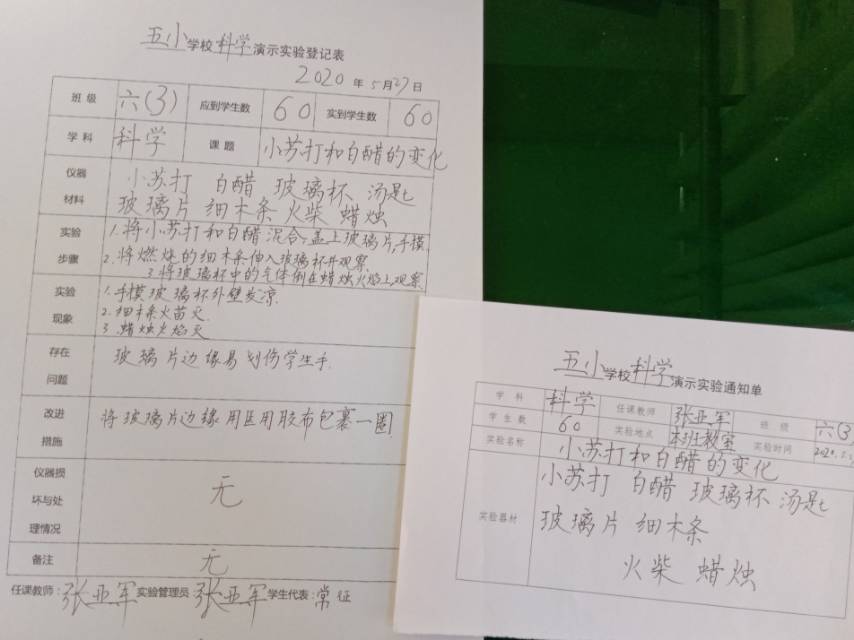 五小学校科学演示实验登记表
2020年5月27日
班级 六(3) 应到学生数 60 实到学生数 60
学科 科学 课题 小苏打和白醋的变化
仪器材料 小苏打 白醋 玻璃杯、汤匙
玻璃片 细木条 火柴 蜡烛
实验步骤 1.将小苏打和白醋混合,盖上玻璃片,手摸
2.将燃烧的细木条伸入玻璃杯并观察
3.将玻璃杯中的气体倒在蜡烛火焰上观察
实验现象 1.手摸玻璃杯外壁发凉
2.细木条火苗灭
3.蜡烛火焰灭
存在问题 玻璃片边缘易划伤学生手.
改进措施 将玻璃片边缘用医用胶布包裹一圈
仪器损坏与处理情况 无
备注 无
任课教师:张亚军 实验管理员:张亚军 学生代表:常征
五小学校科学演示实验通知单
学科 科学 任课教师 张亚军 班级 六(3)
学生数 60 实验地点 本班教室 实验时间
实验名称 小苏打和白醋的变化
实验器材 小苏打 白醋 玻璃杯、汤匙
玻璃片 细木条
火柴 蜡烛